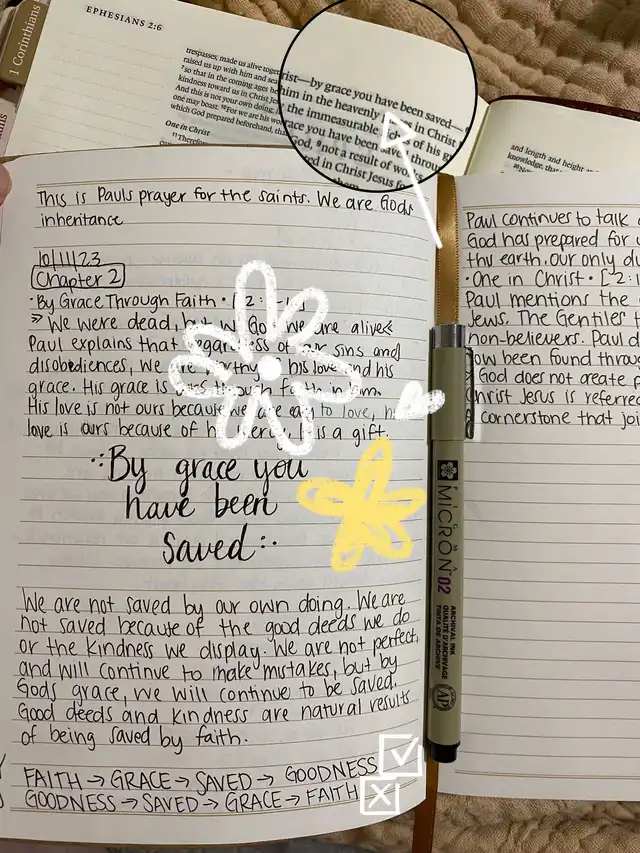 1 Corinthians
EPHESIANS 2:6
trespasses, made us alive together
raised us up with him and sea
so that in the coming ages he
kindness toward us in Christ Jes
And this is not your own doing; i
one may boast. 10 For we are his wo
which God prepared beforehand, tha
One in Christ
11 Therefor
rist—by grace you have been saved—
him in the heavenly in Christ
the immeasurable riches of his g
race you have been saved throu
God, 9 not a result of wo
ed in Christ Jesus fo
them
and length and height
knowledge, that
This is Pauls prayer for the saints. We are Gods
inheritance
10/11/23
Chapter 2
• By Grace Through Faith •
We were dead, but God we are alive
Paul explains that regardless of our sins and
disobediences, we are worthy his love and his
grace. His grace is ours through faith in him.
His love is not ours because we are easy to love,
love is ours because of his mercy. It is a gift.
By grace you
have been
saved
We are not saved by our own doing. We are
not saved because of the good deeds we do
or the kindness we display. We are not perfect,
and will continue to make mistakes, but by
Gods grace, we will continue to be saved.
Good deeds and kindness are natural results
of being saved by faith.
FAITH → GRACE → SAVED → GOODNESS
GOODNESS → SAVED → GRACE → FAITH
Paul continues to talk
God has prepared for
the earth. our only du
• One in Christ • [2:1
Paul mentions the
Jews. The Gentiles
non-believers. Paul d
now been found throug
God does not create
Christ Jesus is referred
cornerstone that joi
PIGMA
MICRON 02
ARCHIVAL INK
QUALITÉ D'ARCHIVAGE
TINTA DE ARCHIVO
AP